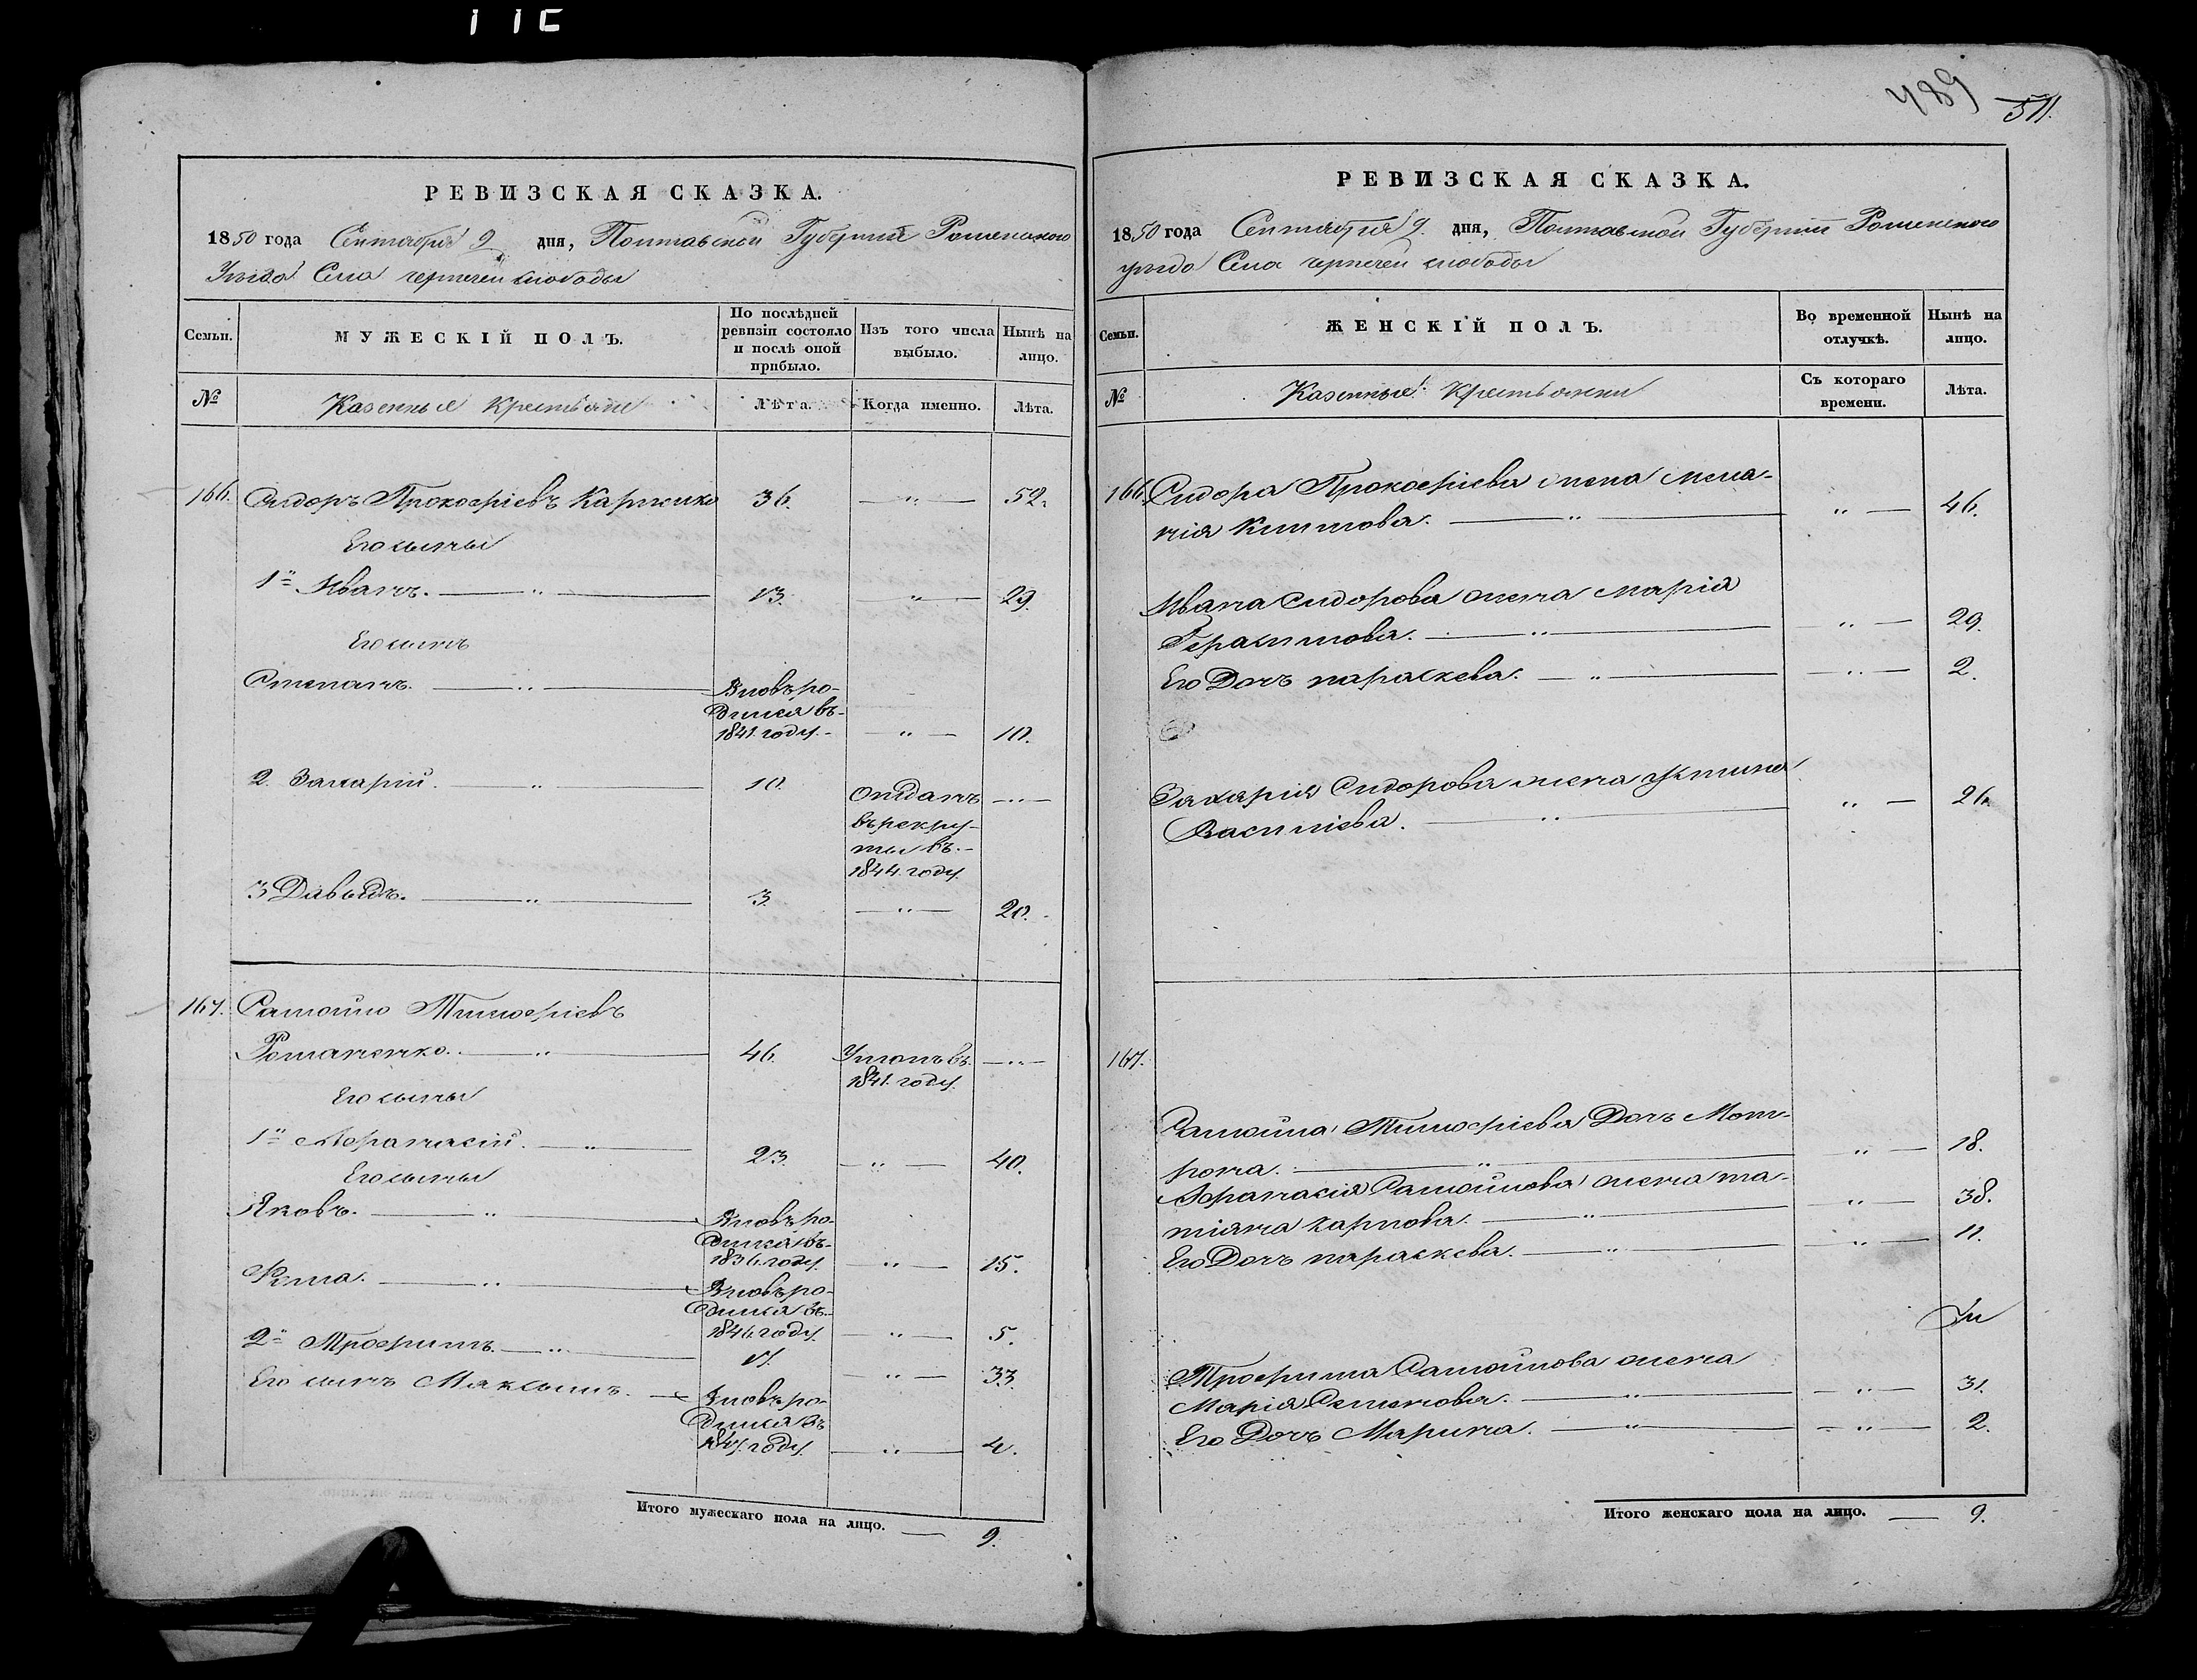 489 511.
РЕВИЗСКАЯ СКАЗКА.
1850 года Сентября 9 дня, Полтавской Губерніи Роменскаго
Уезда Села Чернечей слободы
Семьи.
МУЖЕСКІЙ ПОЛЪ.
По послѣдней
ревизіи состояло
и послѣ оной
прибыло.
Изъ того числа
выбыло.
Нынѣ на
лицо.
№
Казенные Крестьяне
Лѣта.
Когда именно.
Лѣта.
166. Сидоръ Прокофіевъ Карпенко 36. —„— 52.
Его сыны
1й Иванъ. —„— 13. —„— 29.
Его сынъ
Степанъ. —„— Вновь ро-
дился въ
1841. году. —„— 10.
2. Захарій. —„— 10. Отданъ —„—
въ рекру-
ты въ
1844. году.
3 Давыдъ. —„— 3. —„— 20.
167. Самойло Тимофіевъ
Романенко. —„— 46. Умеръ въ —„—
1841. году.
Его сыны
1й Афанасій. —„— 23. —„— 40.
Его сыны
Яковъ. —„— Вновь ро-
дился въ
1836. году. —„— 15.
Фома. —„— Вновь ро-
дился въ
1846. году. —„— 5.
2й Трофимъ. —„— 17. —„— 33.
Его сынъ Максимъ. — Вновь ро-
дился въ
1847. году. —„— 4.
Итого мужескаго пола на лицо. — 9.
РЕВИЗСКАЯ СКАЗКА.
1850 года Сентября 9. дня, Полтавской Губерніи Роменскаго
уезда Села Чернечей слободы
Семьи.
ЖЕНСКІЙ ПОЛЪ.
Во временной
отлучкѣ.
Нынѣ на
лицо.
№
Казенные Крестьянки
Съ котораго
времени.
Лѣта.
166. Сидора Прокофіева жена Мела-
нія Климова. —„— „ — 46.
Ивана Сидорова жена Марія
Герасимова. —„— —„— 29.
Его Дочь Параскева. —„— —„— 2.
Захарія Сидорова жена Устина
Василіева. —„— „ — 26.
167.
Самойла Тимофіева Дочь Мот-
рона. —„— „ — 18.
Афанасія Самойлова жена Та-
тіяна Карпова. —„— „ — 38.
Его Дочь Параскева. —„— —„— 11.
Трофима Самойлова жена
Марія Семенова. —„— —„— 31.
Его Дочь Марина. —„— —„— 2.
Итого женскаго пола на лицо. — 9.